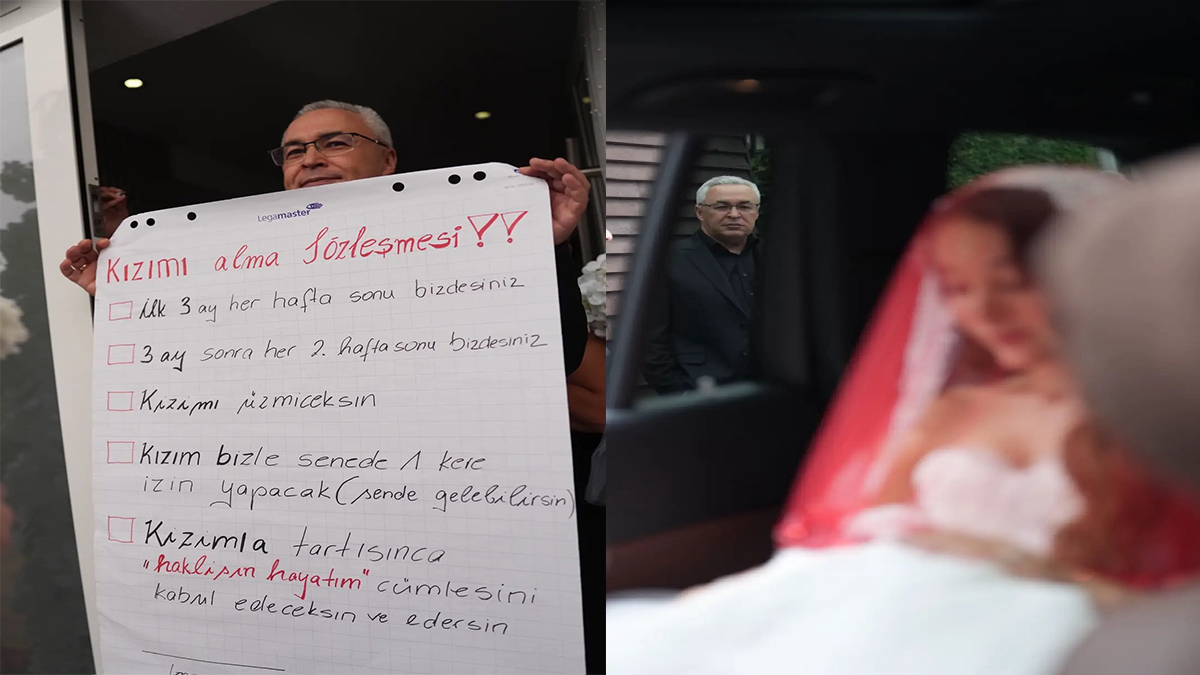 Legamaster
Kızımı alma Sözleşmesi !!
ilk 3 ay her hafta sonu bizdesiniz
3 ay sonra her 2. haftasonu bizdesiniz
Kızımı üzmiceksin
Kızım bizle senede 1 kere
izin yapacak (sende gelebilirsin)
Kızımla tartışınca
"haklısın hayatım" cümlesini
kabul edeceksin ve edersin